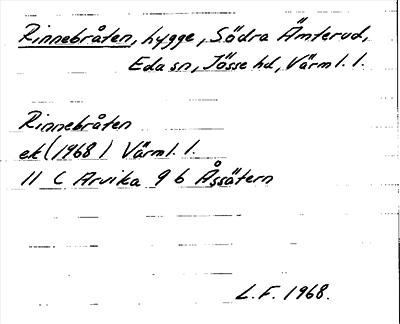 Rinnebråten, bygge, Södra Ämterud,
Eda sn, Jösse hd, Värml. l.
Rinnebråten
ek (1968) Värml. l.
11 C Arvika 9 b Åssätern
L.F. 1968.